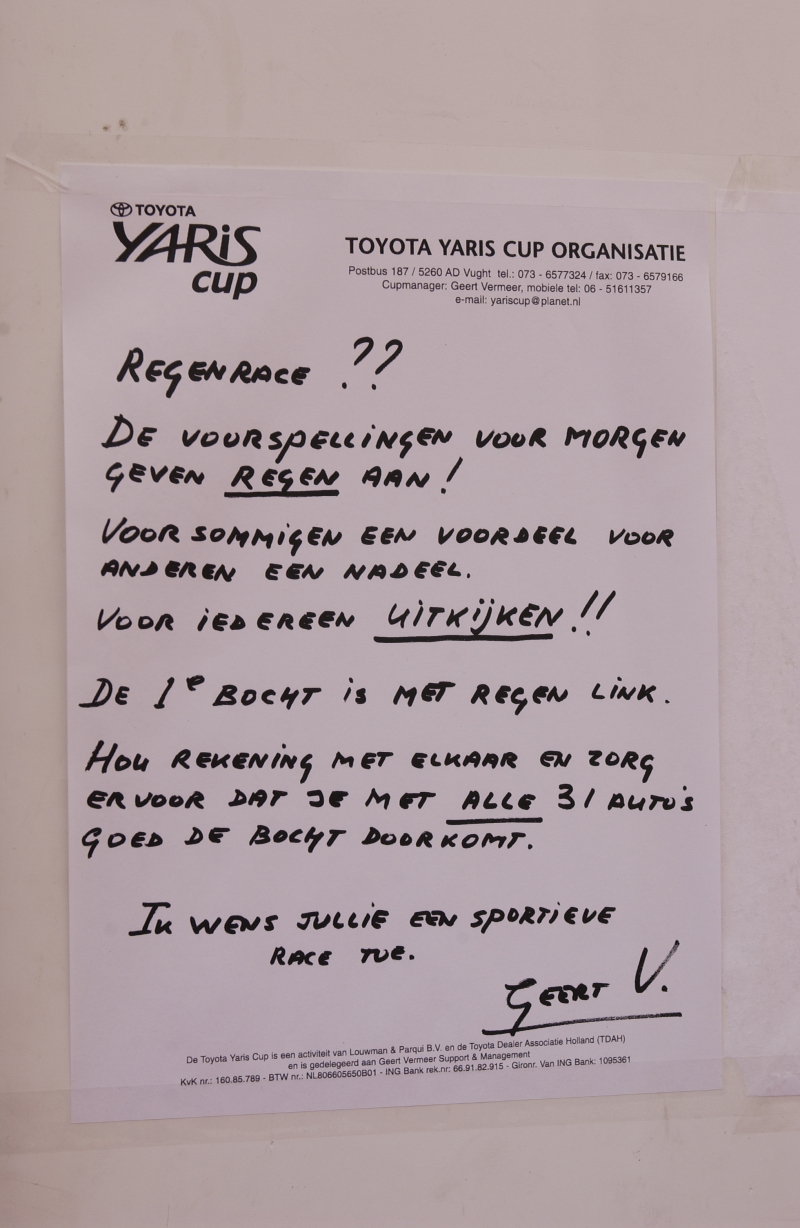 TOYOTA
YARiS
cup
TOYOTA YARIS CUP ORGANISATIE
Postbus 187 / 5260 AD Vught tel.: 073 - 6577324 / fax: 073 - 6579166
Cupmanager: Geert Vermeer, mobiele tel: 06 - 51611357
e-mail: yariscup@planet.nl
REGENRACE ??
DE VOORSPELLINGEN VOOR MORGEN
GEVEN REGEN AAN!
VOOR SOMMIGEN EEN VOORDEEL VOOR
ANDEREN EEN NADEEL.
VOOR IEDEREEN UITKIJKEN!!
DE 1e BOCHT IS MET REGEN LINK.
HOU REKENING MET ELKAAR EN ZORG
ERVOOR DAT JE MET ALLE 31 AUTO'S
GOED DE BOCHT DOORKOMT.
IK WENS JULLIE EEN SPORTIEVE
RACE TOE.
GEERT V.
De Toyota Yaris Cup is een activiteit van Louwman & Parqui B.V. en de Toyota Dealer Associatie Holland (TDAH)
en is gedelegeerd aan Geert Vermeer Support & Management
KvK nr.: 160.85.789 - BTW nr.: NL806605650B01 - ING Bank rek.nr: 66.91.82.915 - Gironr. Van ING Bank: 1095361